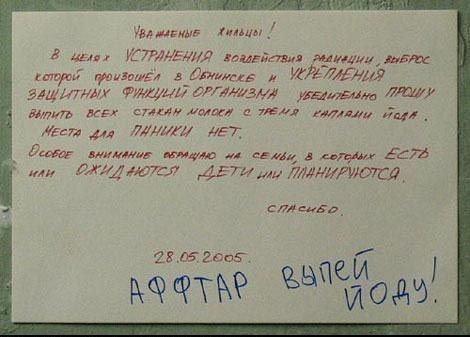 Уважаемые жильцы!
В целях УСТРАНЕНИЯ воздействия радиации, выброс
которой произошёл в Обнинске и УКРЕПЛЕНИЯ
ЗАЩИТНЫХ ФУНКЦИЙ ОРГАНИЗМА убедительно ПРОШУ
выпить всех стакан молока с тремя каплями йода.
Места для ПАНИКИ НЕТ.
Особое внимание обращаю на семьи, в которых ЕСТЬ
или ОЖИДАЮТСЯ ДЕТИ или ПЛАНИРУЮТСЯ.
СПАСИБО.
28.05.2005.
АФФТАР ВЫПЕЙ
ЙОДУ!